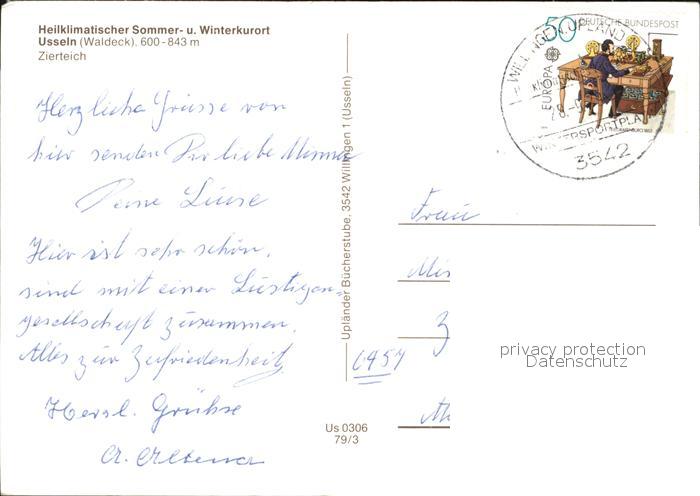 Heilklimatischer Sommer- u. Winterkurort
Usseln (Waldeck). 600-843 m
Zierteich
Herzliche Grüsse von
hier senden Dir liebe
Hier ist sehr schön,
sind mit einer Lustigen-
gesellschaft zusammen.
Alles zur Zufriedenheit
Herzl. Grühse
Upländer Bücherstube, 3542 Willingen 1 (Usseln)
Us 0306
79/3
50 DEUTSCHE BUNDESPOST
EUROPA
WILLINGEN, UPLAND
WINTERSPORTPLA
3542
Frau
6454
privacy protection
Datenschutz